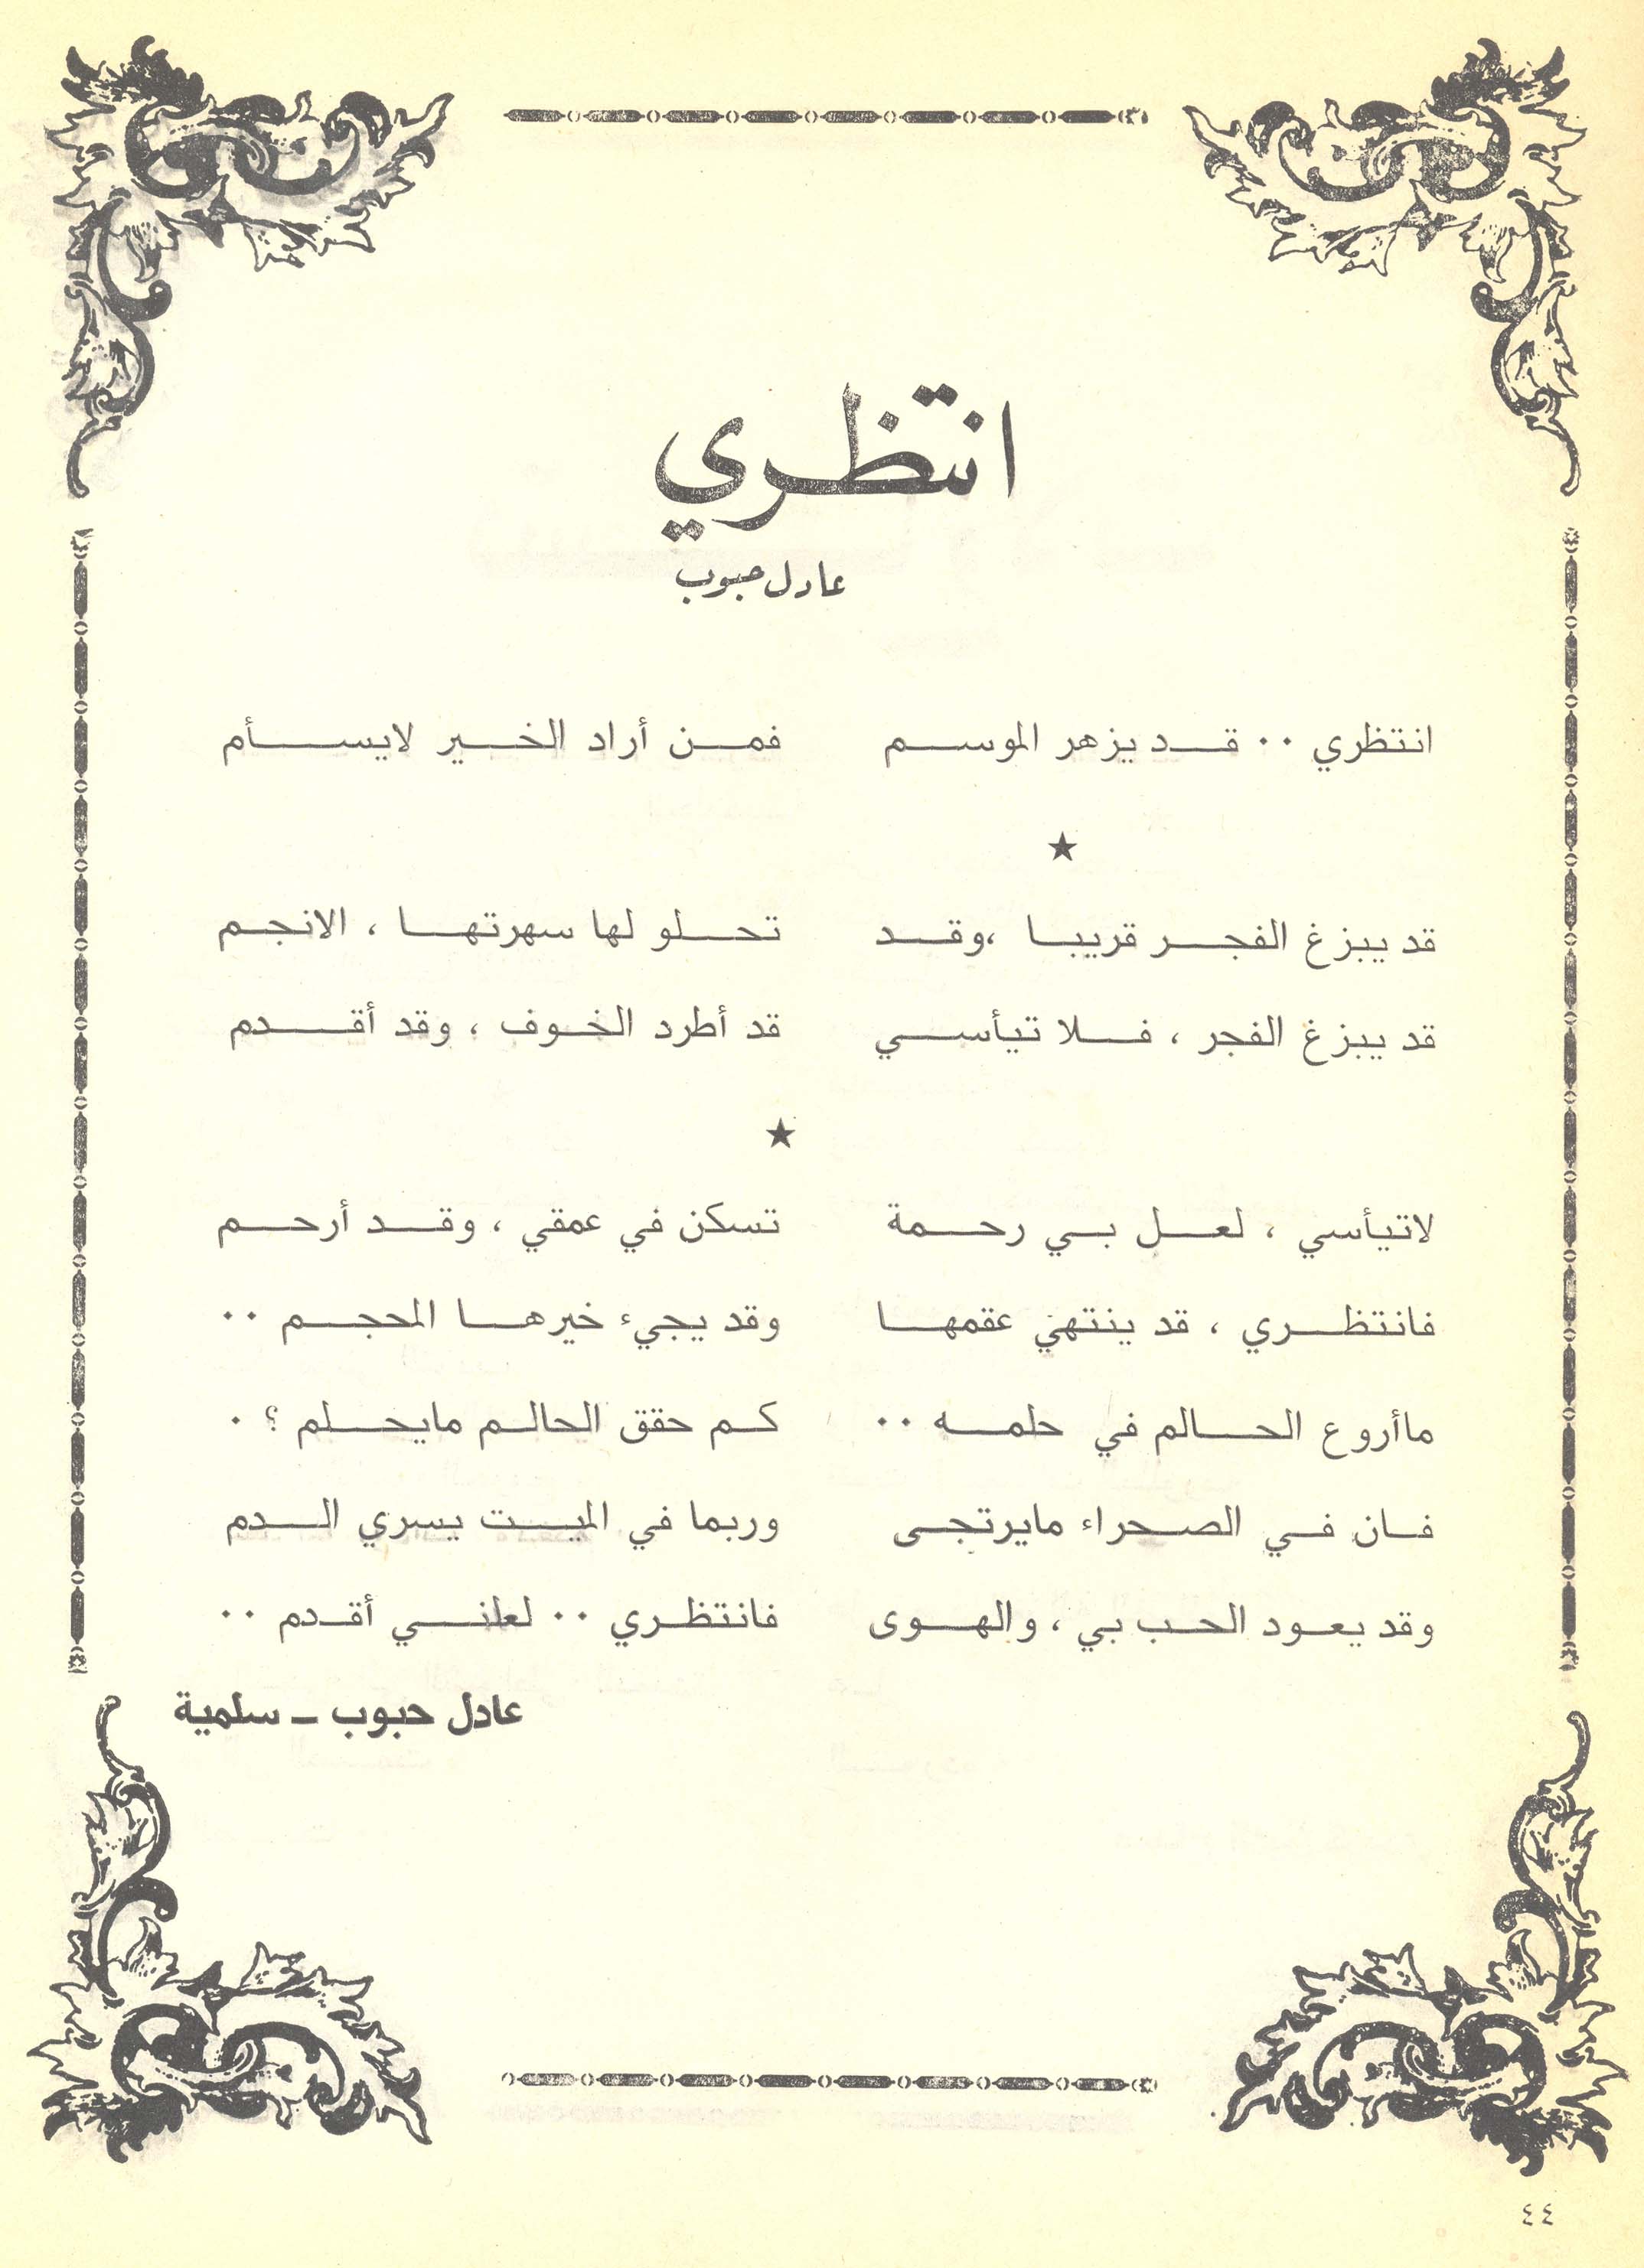 انتظري
عادل حبوب
انتظري ٠٠ قد يزهر الموسم فمن أراد الخير لايسأم
★
قد يبزغ الفجر قريبا ،وقد تحلو لها سهرتها ، الانجم
قد يبزغ الفجر ، فلا تيأسي قد أطرد الخوف ، وقد أقدم
★
لاتيأسي ، لعل بي رحمة تسكن في عمقي ، وقد أرحم
فانتظري ، قد ينتهي عقمها وقد يجيء خيرها المحجم ٠٠
ماأروع الحالم في حلمه ٠٠ كم حقق الحالم مايحلم ؟ ٠
فان في الصحراء مايرتجى وربما في الميت يسري الدم
وقد يعود الحب بي ، والهوى فانتظري ٠٠ لعلني أقدم ٠٠
عادل حبوب ــ سلمية
٤٤